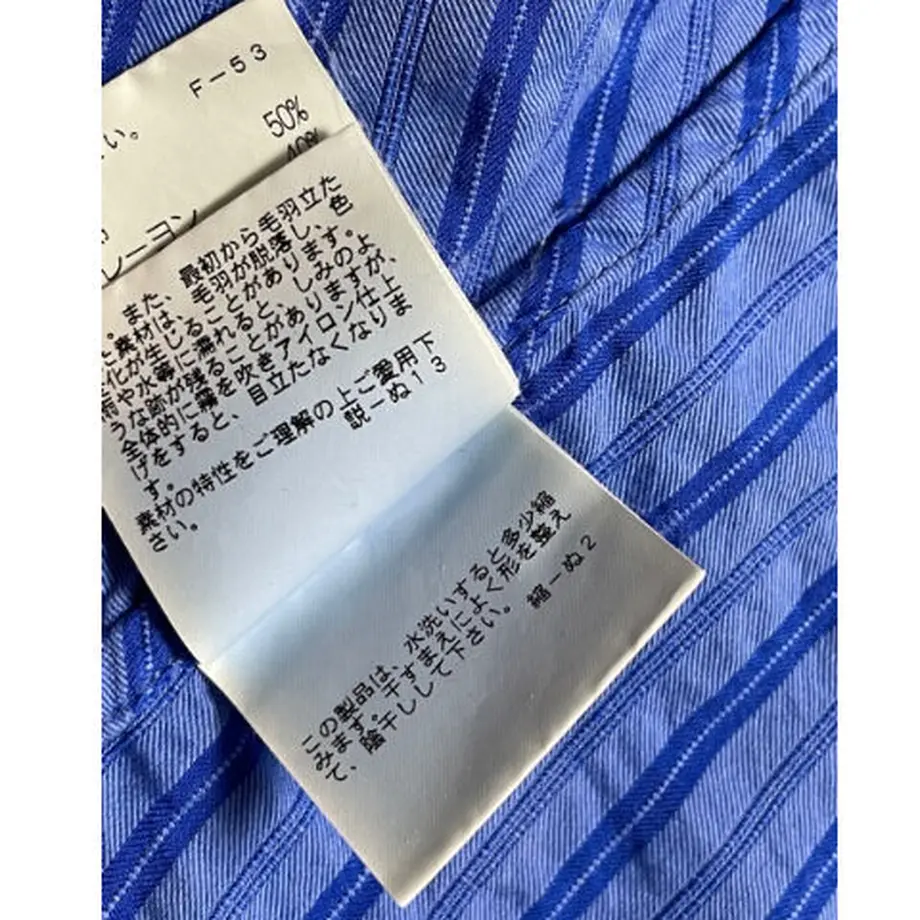 F－53
い。
50%
40%
レーヨン
。また、最初から毛羽立た
た素材は、毛羽が脱落し、色
変化が生じることがあります。
雨や水等に濡れると、しみのよ
うな跡が残ることがありますが、
全体的に霧を吹きアイロン仕上
げをすると、目立たなくなりま
す。
素材の特性をご理解の上ご愛用下
さい。
説－ぬ13
この製品は、水洗いすると多少縮
みます。干すまえによく形を整え
て、陰干しして下さい。
縮－ぬ2